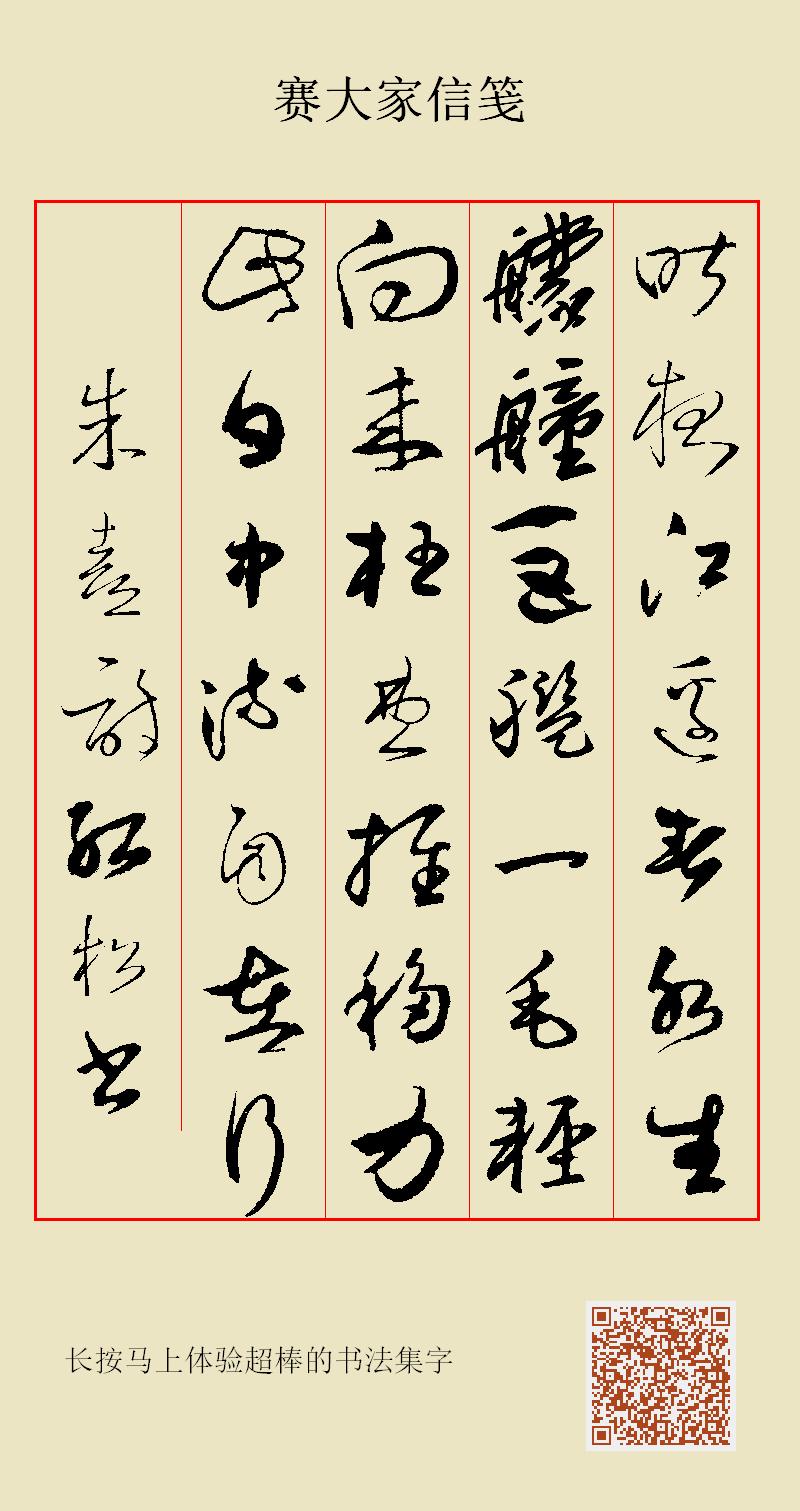 赛大家信笺
昨夜江邊春水生
艨艟巨艦一毛輕
向来枉費推移力
此日中流自在行
朱熹詩紅松書
长按马上体验超棒的书法集字